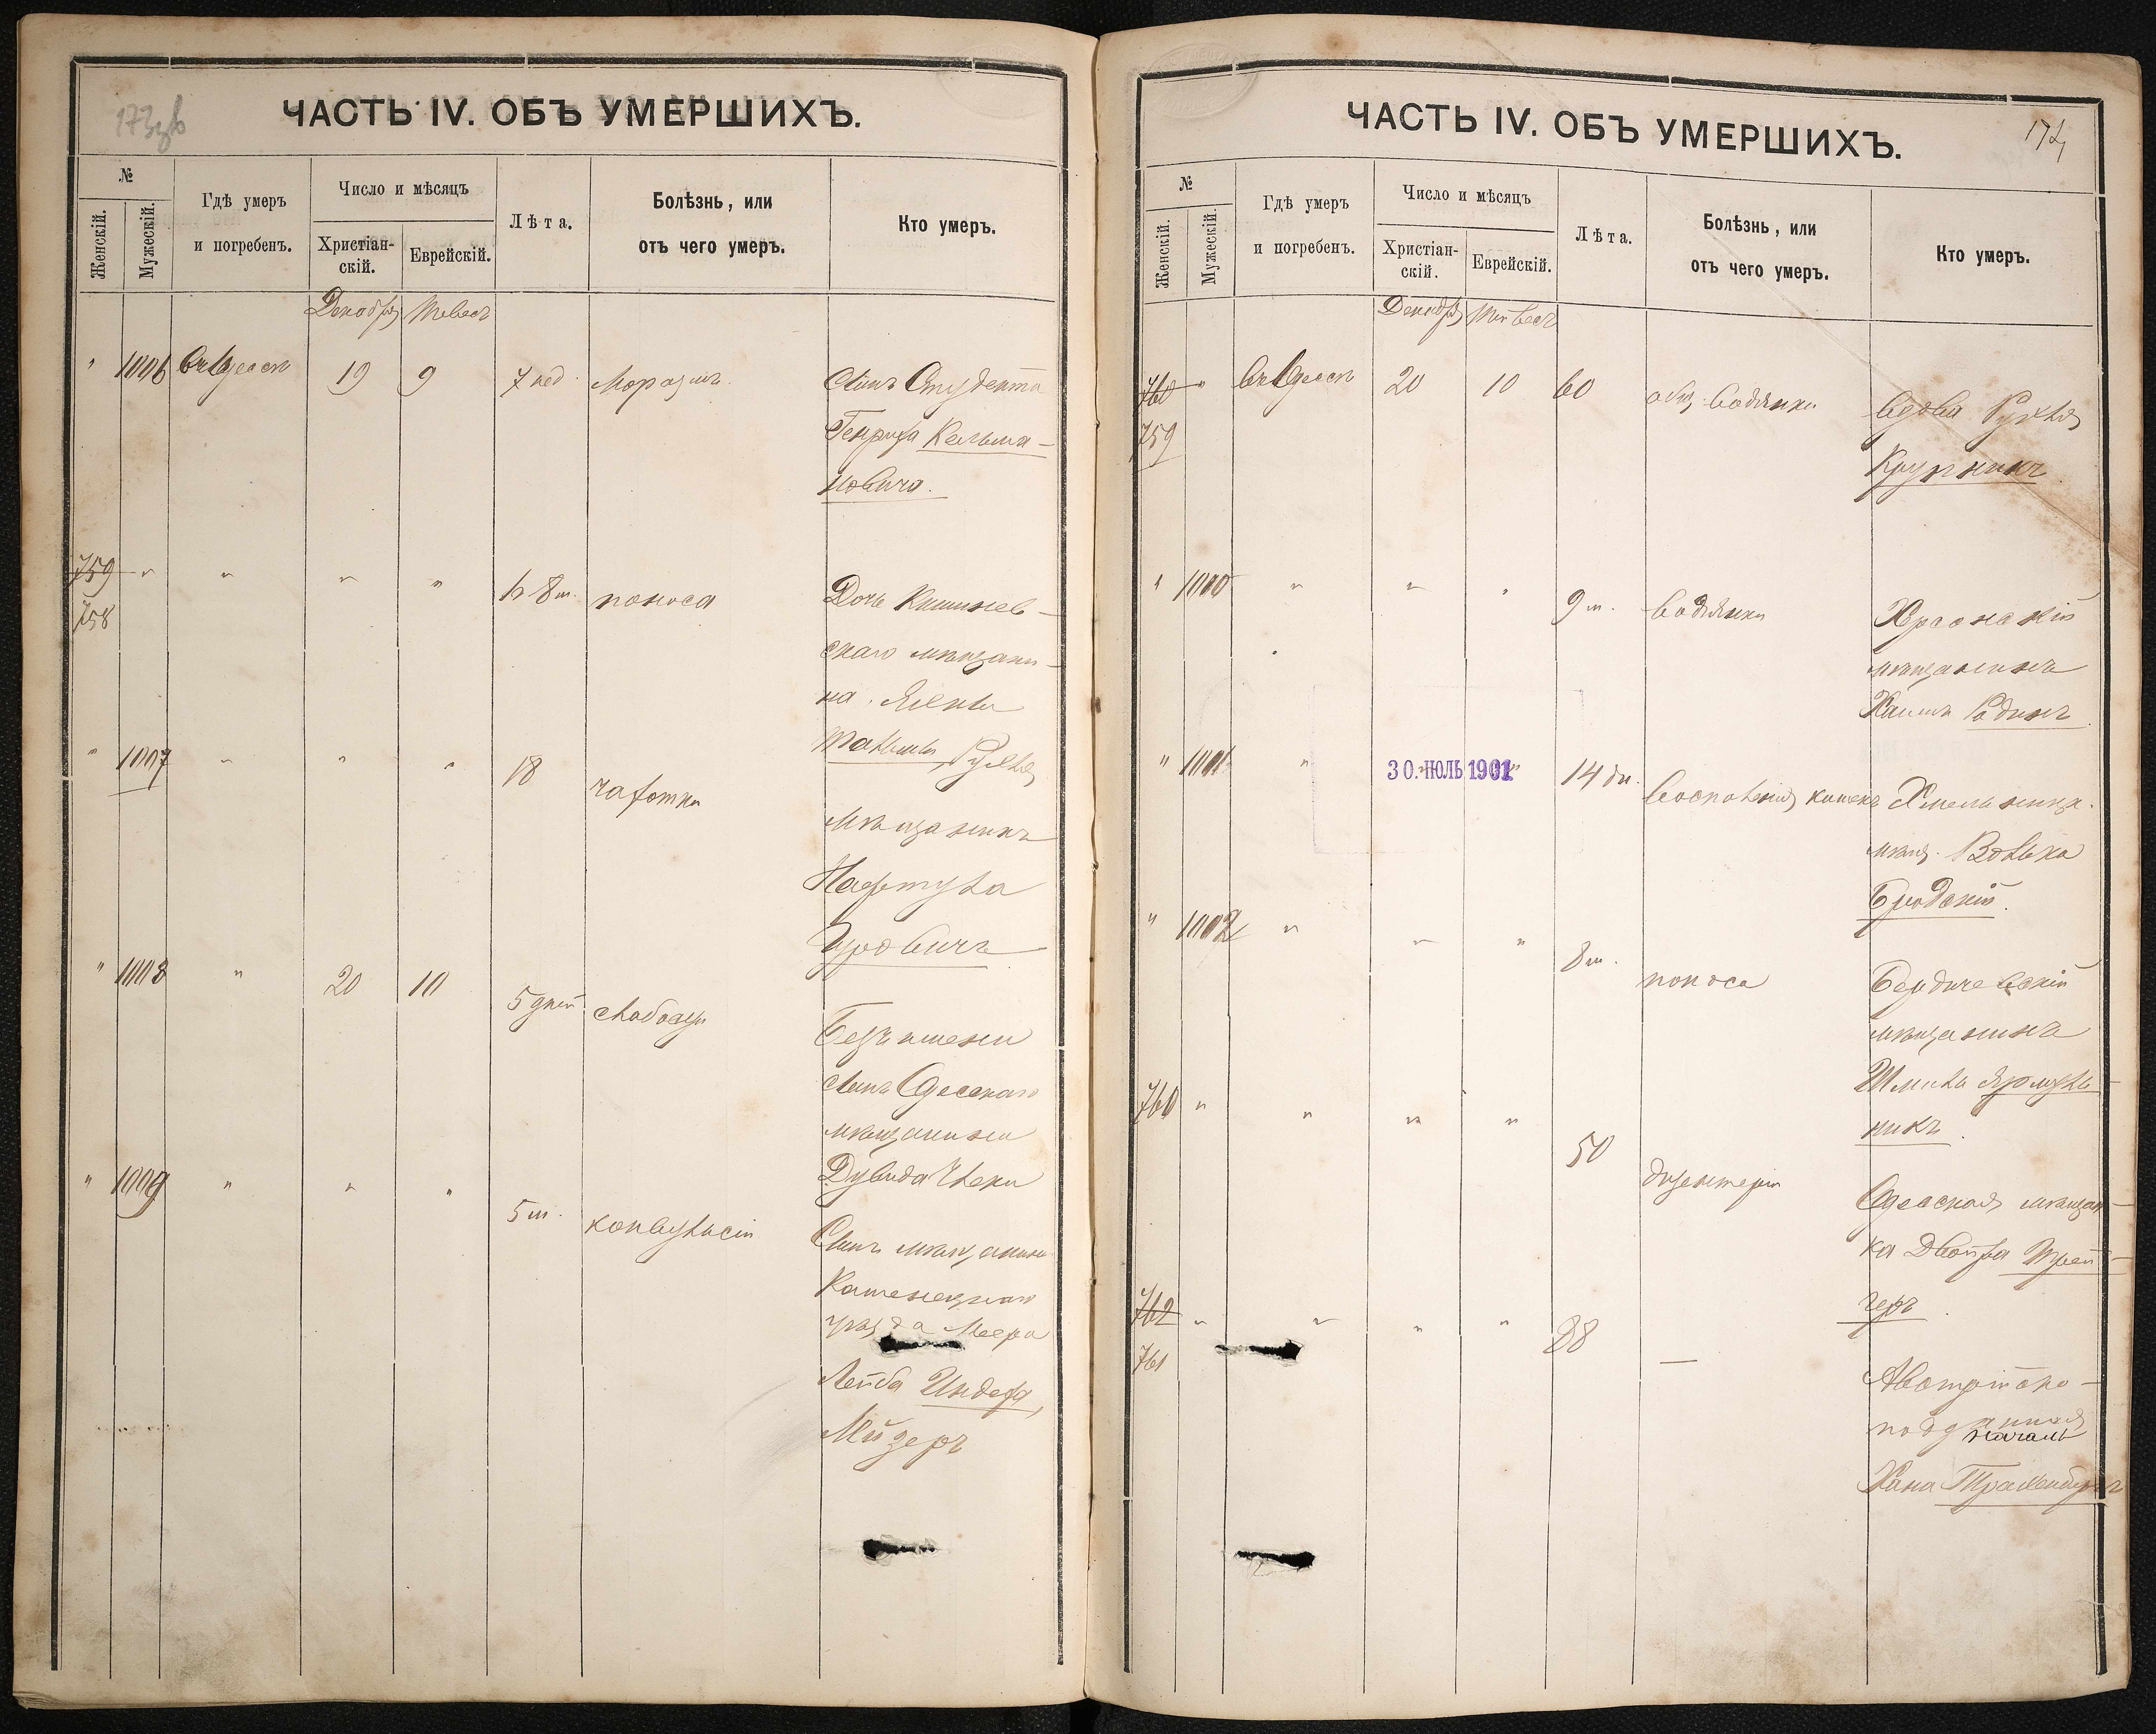 173 об
ЧАСТЬ IV. ОБЪ УМЕРШИХЪ.
№
Женскій.
Мужескій.
Гдѣ умеръ
и погребенъ.
Число и мѣсяцъ
Христіан-
скій.
Еврейскій.
Лѣта.
Болѣзнь, или
отъ чего умеръ.
Кто умеръ.
Декабрь Тевесъ
" 1006 въ Одессѣ 19 9 7 нед. Моразмъ. Сынъ Студента
Генриха Кельма-
новича.
759 " " " " 1 г 8 м. поноса Дочь Кишинев-
758
скаго мѣщани-
на
Рухля
" 1007 " " " 18 чахотки
Мѣщанинъ
Нафтула
Гуровичъ
" 1008 " 20 10 5 дней слабости
Безъ имени
сынъ Одесскаго
мѣщанина
Дувида
" 1009 " " " 5 м. конвульсіи
Сынъ мѣщанина
Каменецкаго
уѣзда Меера
Лейба
174
ЧАСТЬ IV. ОБЪ УМЕРШИХЪ.
№
Женскій.
Мужескій.
Гдѣ умеръ
и погребенъ.
Число и мѣсяцъ
Христіан-
скій.
Еврейскій.
Лѣта.
Болѣзнь, или
отъ чего умеръ.
Кто умеръ.
Декабрь Тевесъ
760 " въ Одессѣ 20 10 60 общ. водянки вдова Рухля
759
Крупникъ
" " " " 9 м. водянки Херсонскій
мѣщанинъ
Хаимъ Рдинъ
" " 30.ІЮЛЬ 1901 14 дн.
воспаленія кишекъ Хмельницк.
мѣщ. Волько
Бродскій.
" " " " 8 м.
поноса Бердичевскій
мѣщанинъ
Шмиль Ярмуль-
никъ.
760 " " " " 50
дизентеріи
Одесская мѣщан-
ка Двойра Трей-
геръ.
762 " " " " 88 —
761
Австрійско-
подданная
Хана